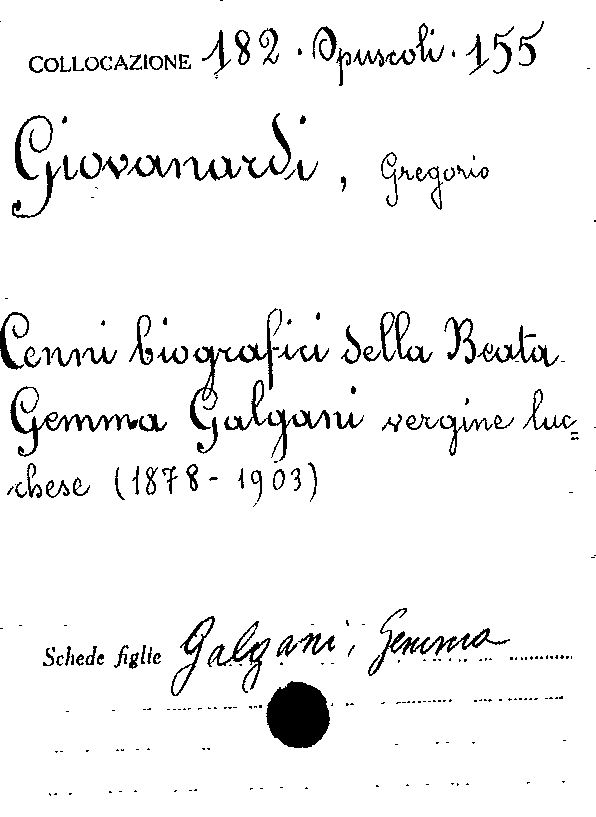 COLLOCAZIONE 182. Opuscoli. 155
Giovanardi, Gregorio
Cenni biografici della Beata
Gemma Galgani vergine luc=
chese (1878-1903)
Schede figlie Galgani, Gemma